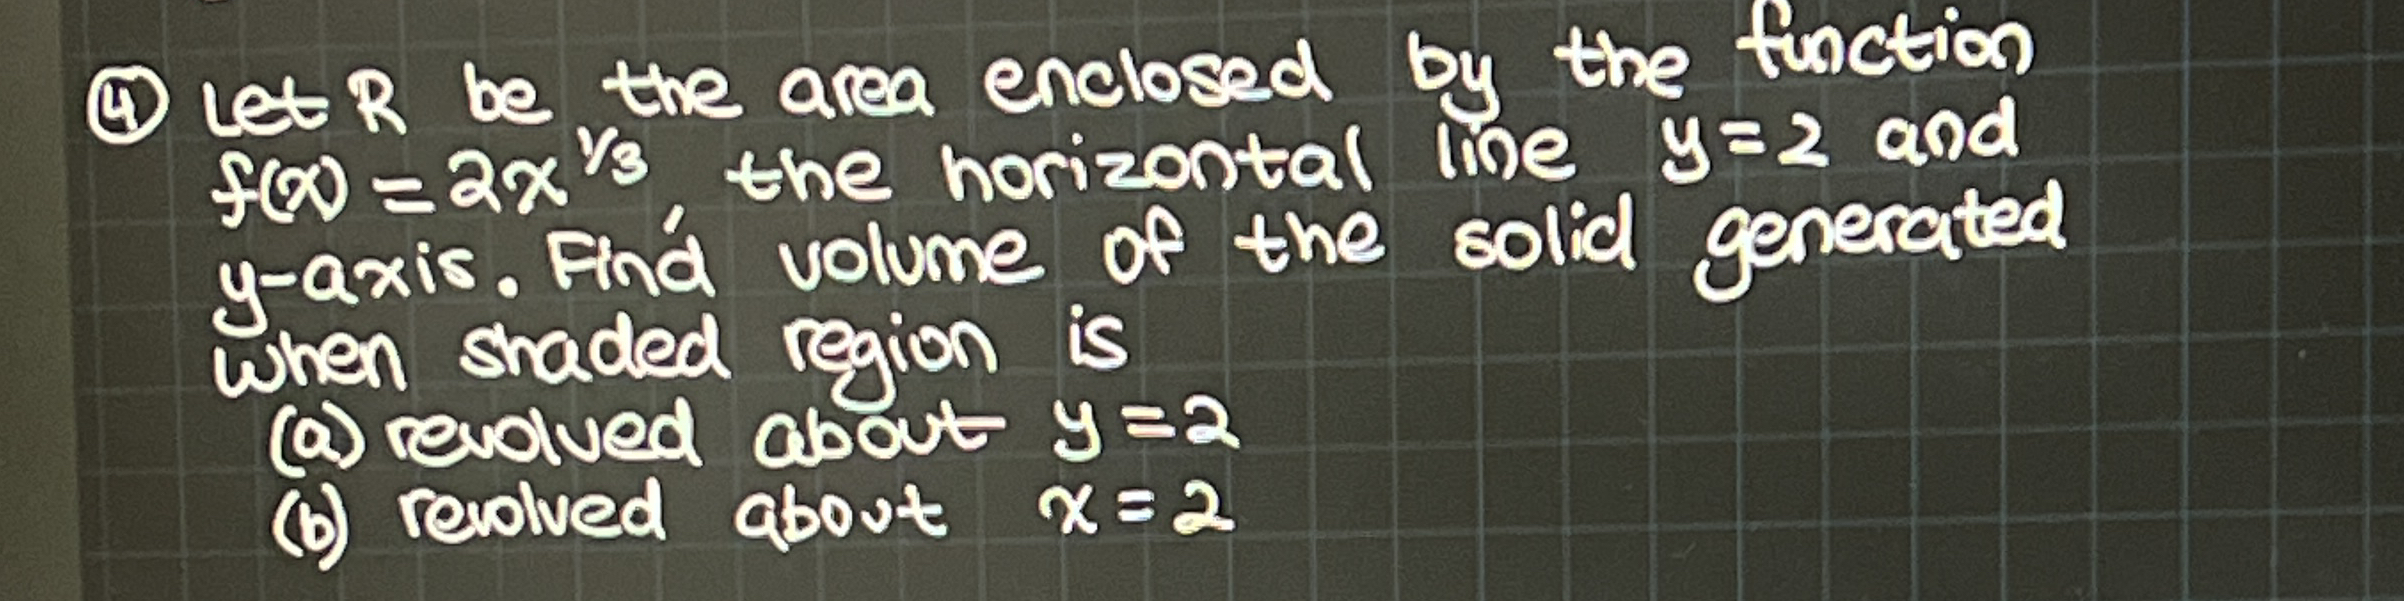 ④ Let R be the area enclosed by the function
f(x) = 2x^1/3, the horizontal line y=2 and
y-axis. Find volume of the solid generated
when shaded region is
(a) revolved about y=2
(b) revolved about x=2